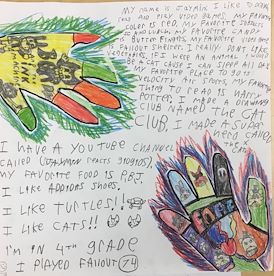 My name is Jaymin I like to draw
and play video games. My favorite
color is red, my favorite subject
is lunch. My favorite candy
is Butter Fingers, my favorite video game
is Fallout Shelter. I really don't like
vegetables. If I were an animal I would
be a cat cause I can sleep all day
My favorite place to go is
velocity for sports, my favorite
thing to read is Harry
Potter, I made a drawing
club named the cat
club, I made a super
hero called
the cat
I have a YouTube channel
called
my favorite food is P.B.J.
I like addidas shoes.
I like turtles!!
I like cats!!
I'm in 4th grade
I played Fallout 74